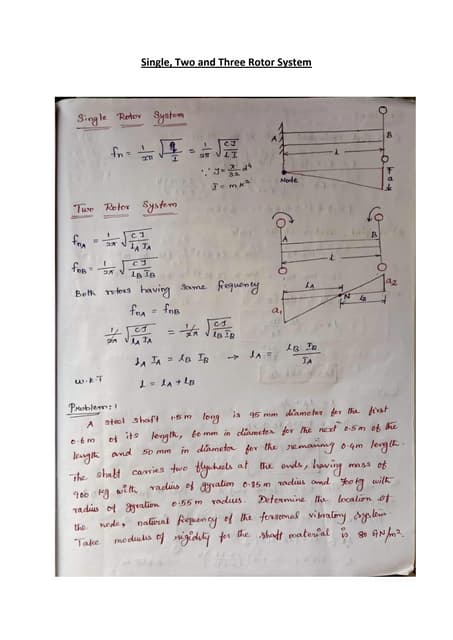 Single, Two and Three Rotor System
Single Rotor System
fn = 1/2π √(q/I) = 1/2π √(CJ/lI)
∵ J = π/32 d⁴
I = mk²
A
B
l
Node
a
Two Rotor System
fnA = 1/2π √(CJ/lA IA)
fnB = 1/2π √(CJ/lB IB)
A
B
l
lA
N
lB
a1
a2
Both rotors having same frequency
fnA = fnB
1/2π √(CJ/lA IA) = 1/2π √(CJ/lB IB)
lA IA = lB IB → lA = lB IB/IA
W.K.T l = lA + lB
Problem: 1
A steel shaft 1.5 m long is 95 mm diameter for the first
0.6 m of its length, 60 mm in diameter for the next 0.5 m of the
length and 50 mm in diameter for the remaining 0.4 m length.
The shaft carries two flywheels at the ends, having mass of
900 kg with radius of gyration 0.85 m radius and 700 kg with
radius of gyration 0.55 m radius. Determine the location of
the node, natural frequency of the torsional vibratory system.
Take modulus of rigidity for the shaft material is 80 GN/m².